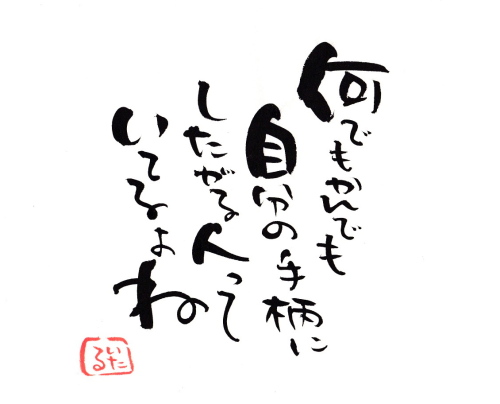 何でもかんでも
自分の手柄に
したがる人って
いてるよね
いたる